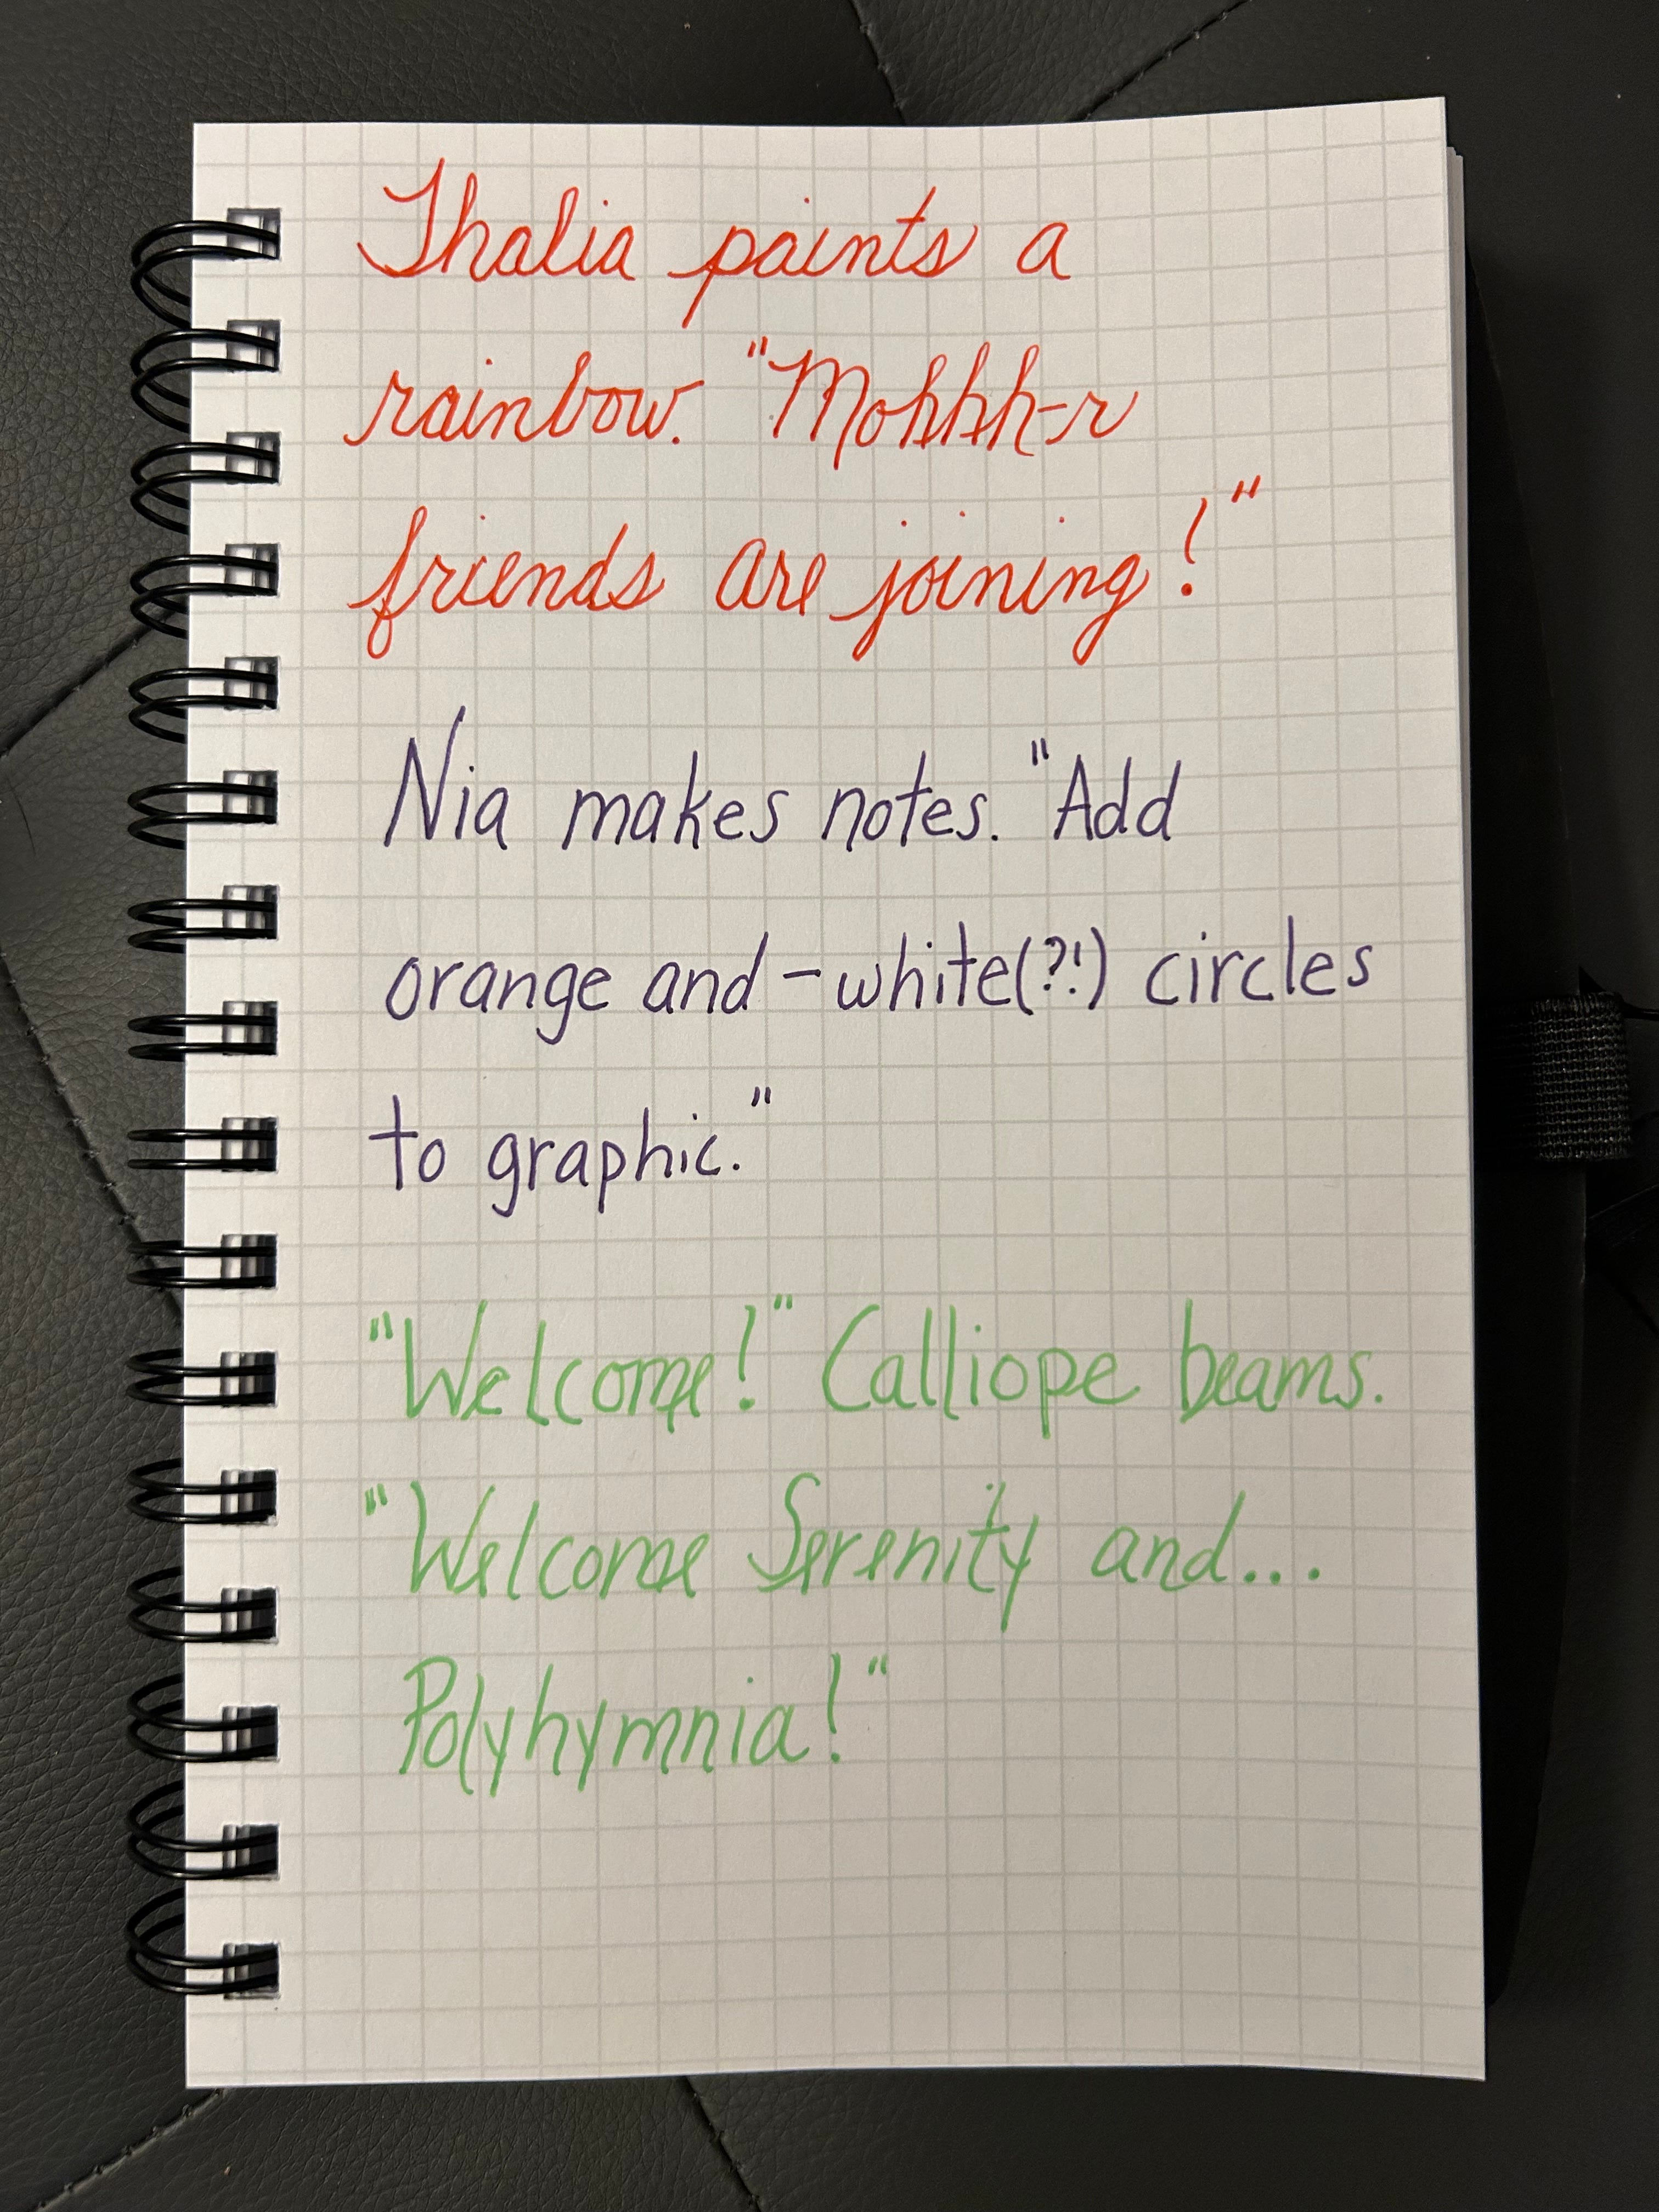 Thalia paints a
rainbow. "Mohhh-r
friends are joining!"
Nia makes notes. "Add
orange and - white(?!) circles
to graphic."
"Welcome!" Calliope beams.
"Welcome Serenity and...
Polyhymnia!"